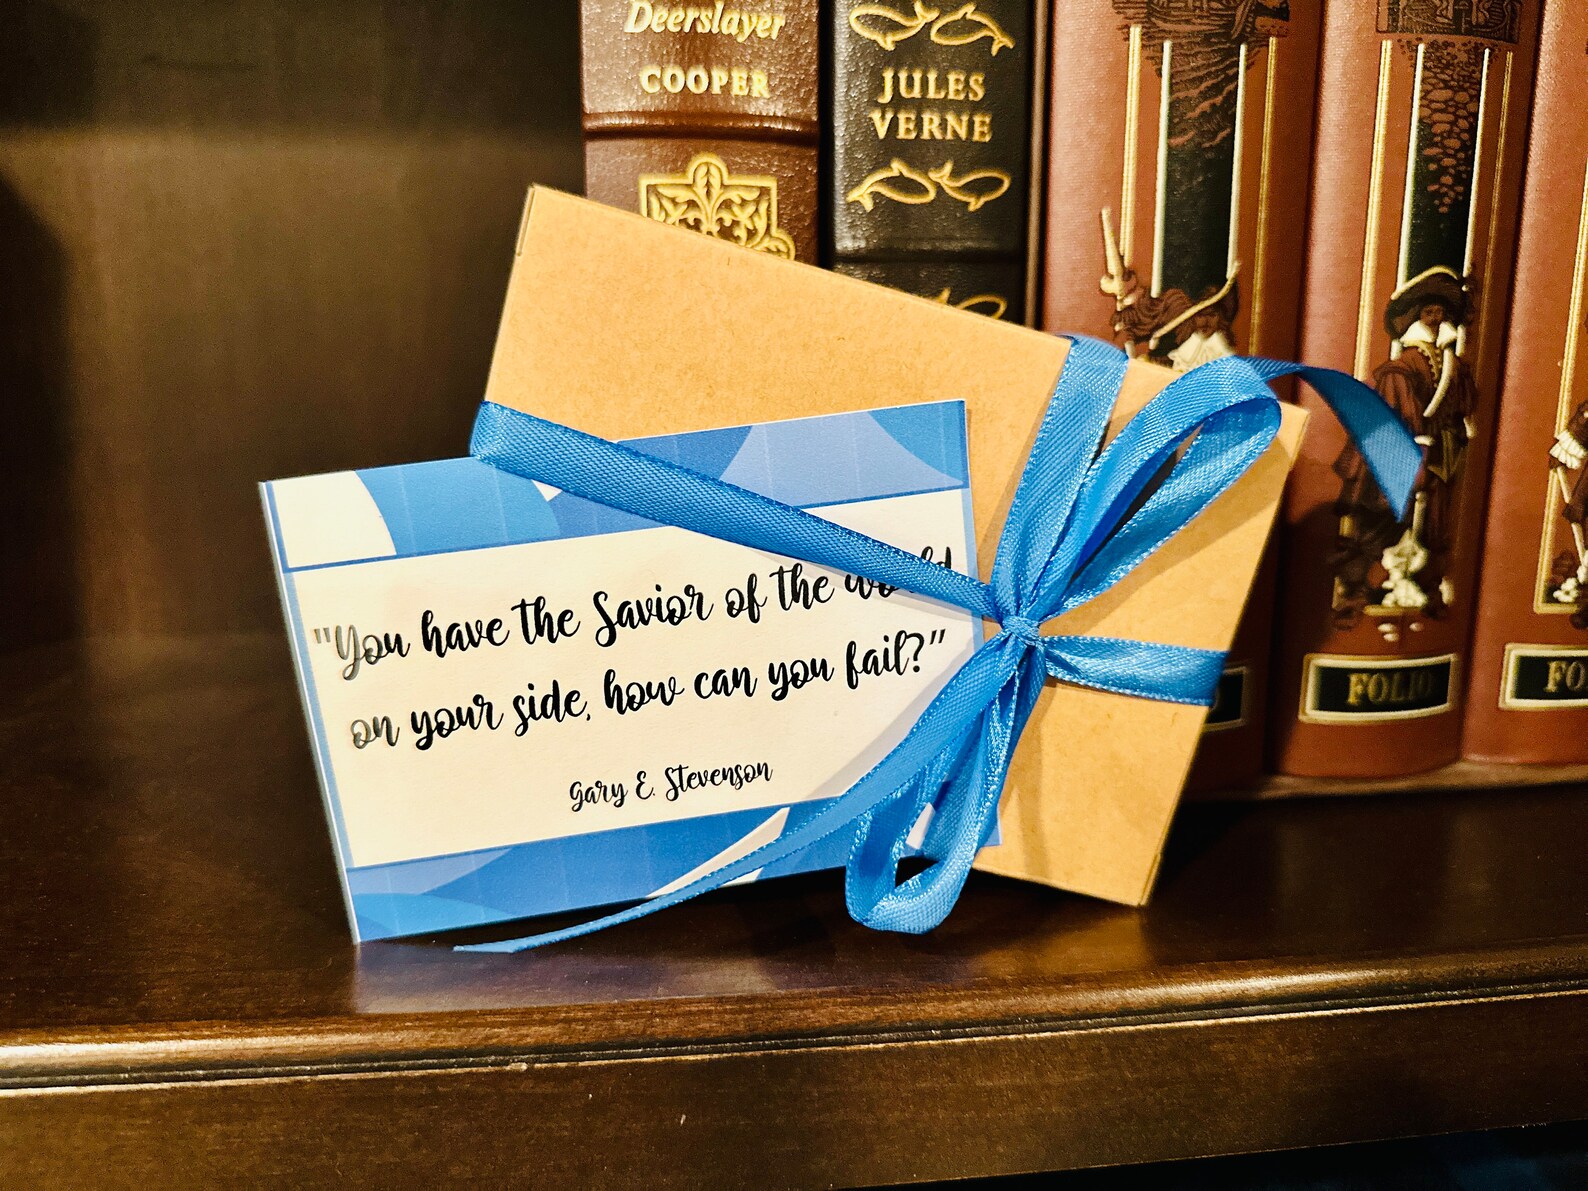 Deerslayer
COOPER
JULES
VERNE
"You have the Savior of the world
on your side, how can you fail?"
Gary E. Stevenson
FOLIO
FO